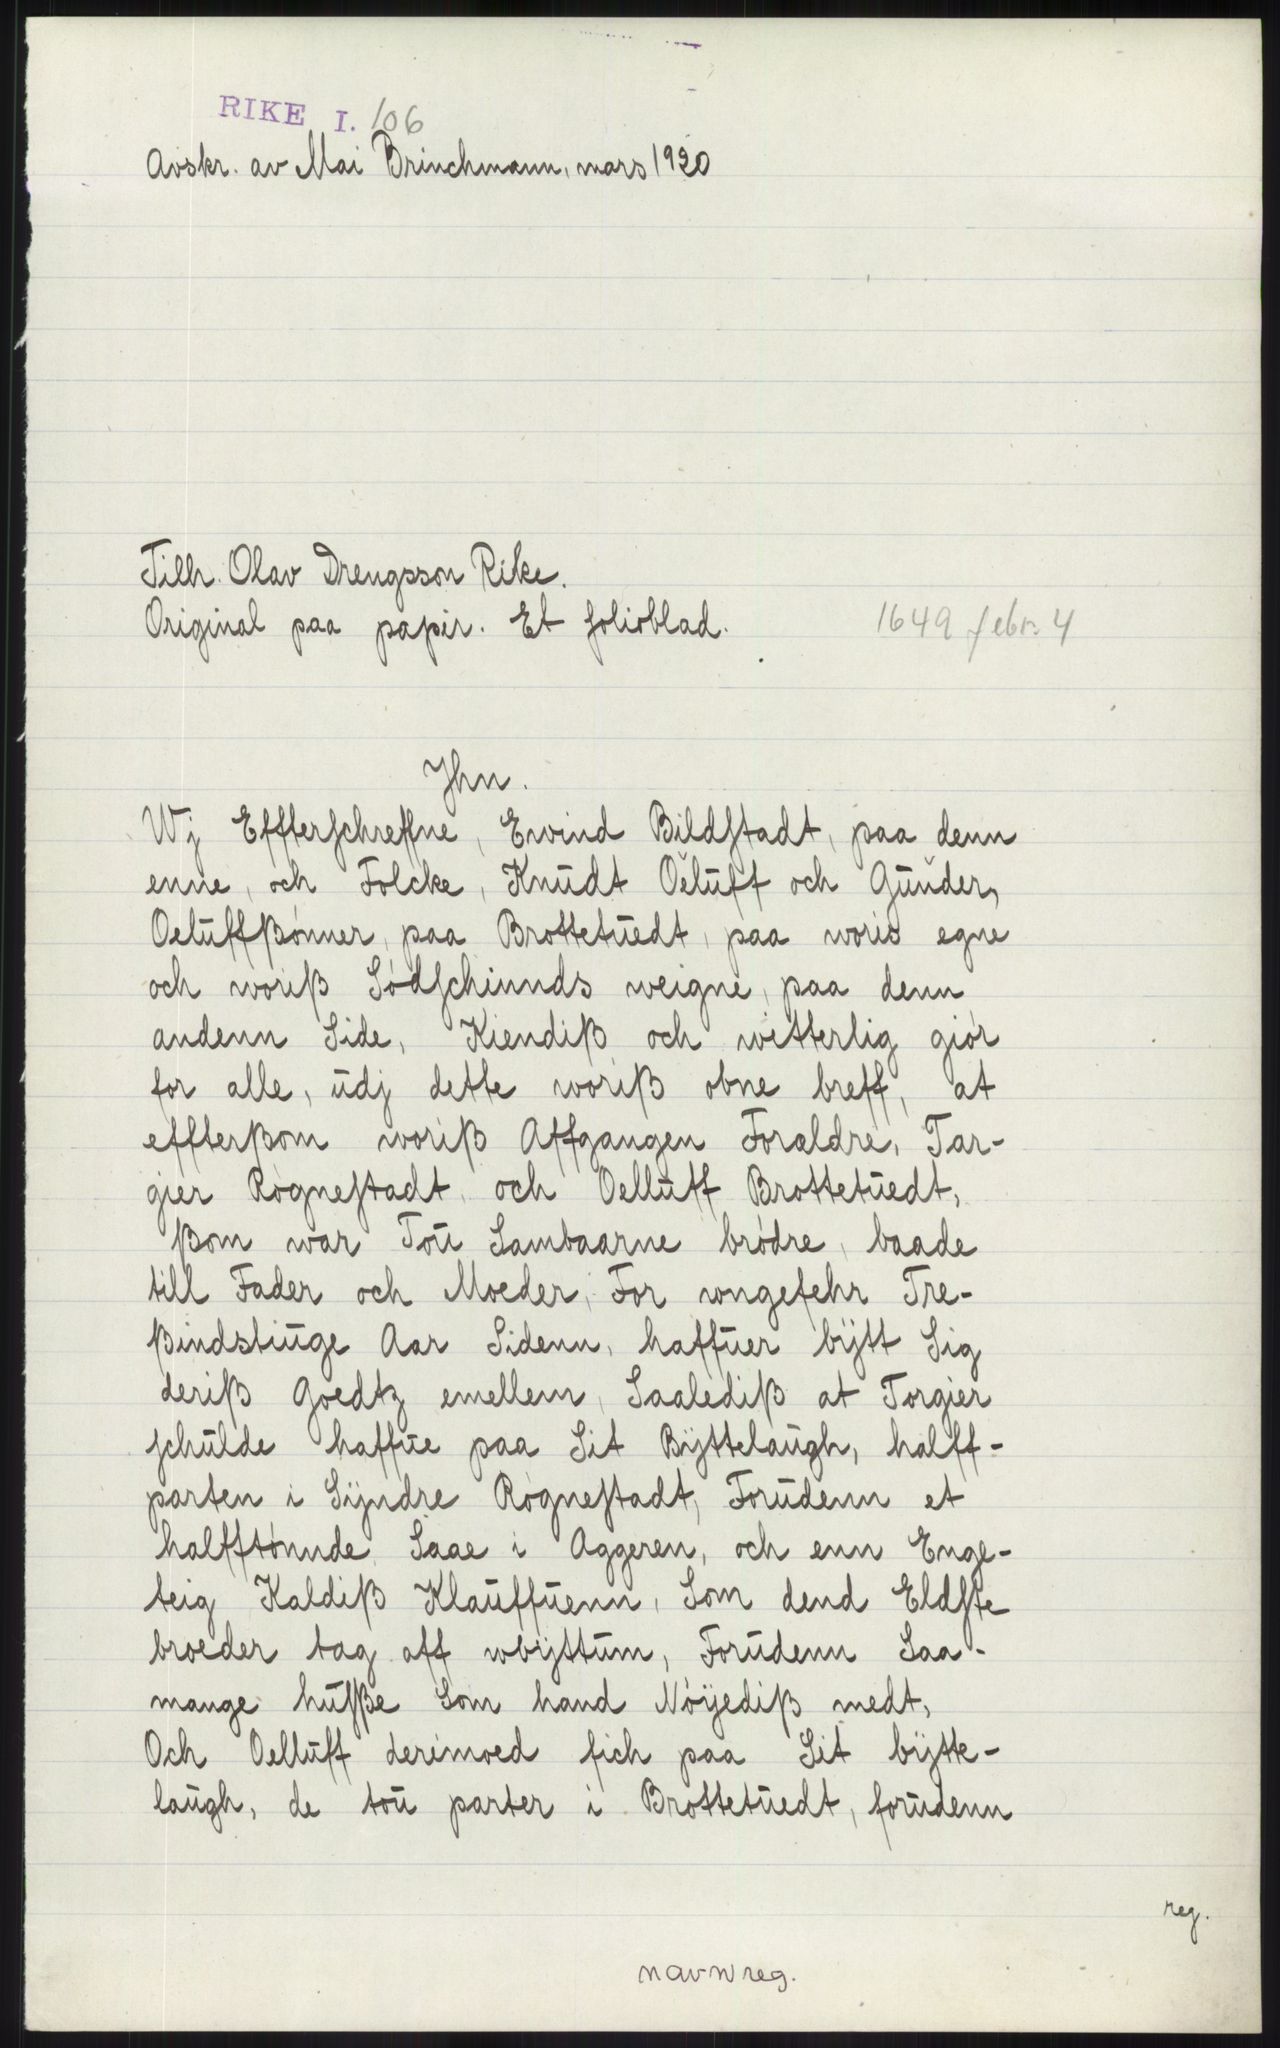 RIKE I. 106
Avskr. av Mai Brinchmann, mars 1920
Tilh. Olav Drengsson Rike.
Original paa papir. Et folioblad.
1649 febr. 4
Jhn.
Wj Effterschreffne, Ewind Bildstadt, paa denn
enne, och Folcke, Knŭdt Oelŭff och Gŭnder,
Oelŭffßønner, paa Brottetŭedt, paa woris egne
och woriß Sødschinnds weigne, paa denn
andenn Side, Kiendiß och witterlig giør
for alle, ŭdj dette woriß obne breff, at
effterßom woriß Affgangen Forældre, Tar-
gier Rognestadt, och Oellŭff Brottetŭedt,
ßom war Toŭ Sambaarne brødre, baade
till Fader och Moeder, For wngefehr Tre-
ßindstiŭge Aar Sidenn, haffŭer bÿtt Sig
deriß Goedtz emellem, Saalediß at Torgier
schŭlde haffŭe paa Sit Bÿttelaŭgh, halff-
parten i Sÿndre Rognestadt, Forŭdenn et
halfftønnde Saae i Aggeren, och enn Enge-
teig Kaldiß Klaŭffŭenn, Som dend Eldste
broeder tag aff wbÿttŭm, Forŭdenn Saa-
mange hŭsße Som hand Nøÿediß medt,
Och Oellŭff derimoed fich paa Sit bÿtte-
laŭgh, de toŭ parter i Brottetŭedt, forŭdenn
reg.
navnreg.